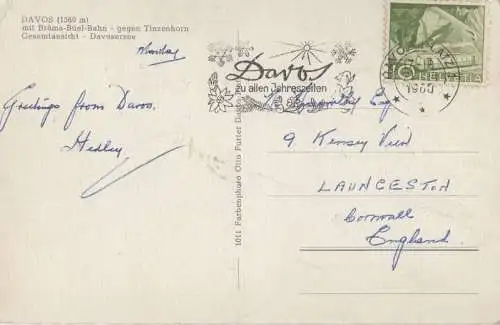 DAVOS (1560 m)
mit Bräma-Büel-Bahn - gegen Tinzenhorn
Gesamtansicht - Davosersee
Greetings from Davos.
Hedley
1011 Farbenphoto Otto Furter
Davos
zu allen Jahreszeiten
DAVOS PLATZ
HELVETIA
Esq
9 Kensey View
LAUNCESTON
Cornwall
England.